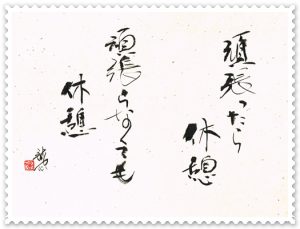 頑張ったら
休憩
頑張らなくても
休憩